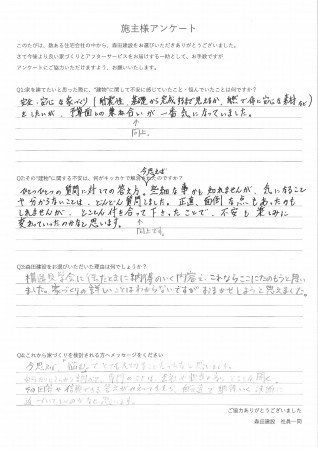 施主様アンケート
このたびは、数ある住宅会社の中から、森田建設をお選びいただきありがとうございました。
さて今後より良い家づくりとアフターサービスをお届けする一助として、お手数ですが
アンケートにご協力いただけますよう、お願いいたします。
Q1:家を建てたいと思った際に、"建物"に関して不安に感じていたこと・悩んでいたことは何ですか？
安全・安心な家づくり(耐震性、基礎から完成まで見えるか、自然で体に安心な素材など)
をしたいが、予算面との兼ね合いが一番気になっていました。
向上。
Q2:その"建物"に関する不安は、何がキッカケで解消されたのですか？
今思えば
ひとつひとつの質問に対しての答え方。些細な事かも知れませんが、気になること
や分からないことは、どんどん質問しました。正直、面倒な点もあったかも
しれませんが、とことん付き合って下さったことで、不安も楽しみに
変わっていったのかなと思います。
向上です。
Q3:森田建設をお選びいただいた理由は何でしょうか？
構造見学会に行ったときに納得のいく内容で、これならここにたのもうと思い
ました。家づくりの詳しいことはわからないですがおまかせしようと思えました。
Q4:これから家づくりを検討される方へメッセージをください
今思えば、悩むことも
思います。
ご協力ありがとうございました
森田建設 社員一同